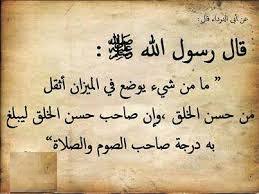 عن أبي الدرداء قال:
قال رسول الله ﷺ :
" ما من شيء يوضع في الميزان أثقل
من حسن الخلق ,وإن صاحب حسن الخلق ليبلغ
به درجة صاحب الصوم والصلاة"